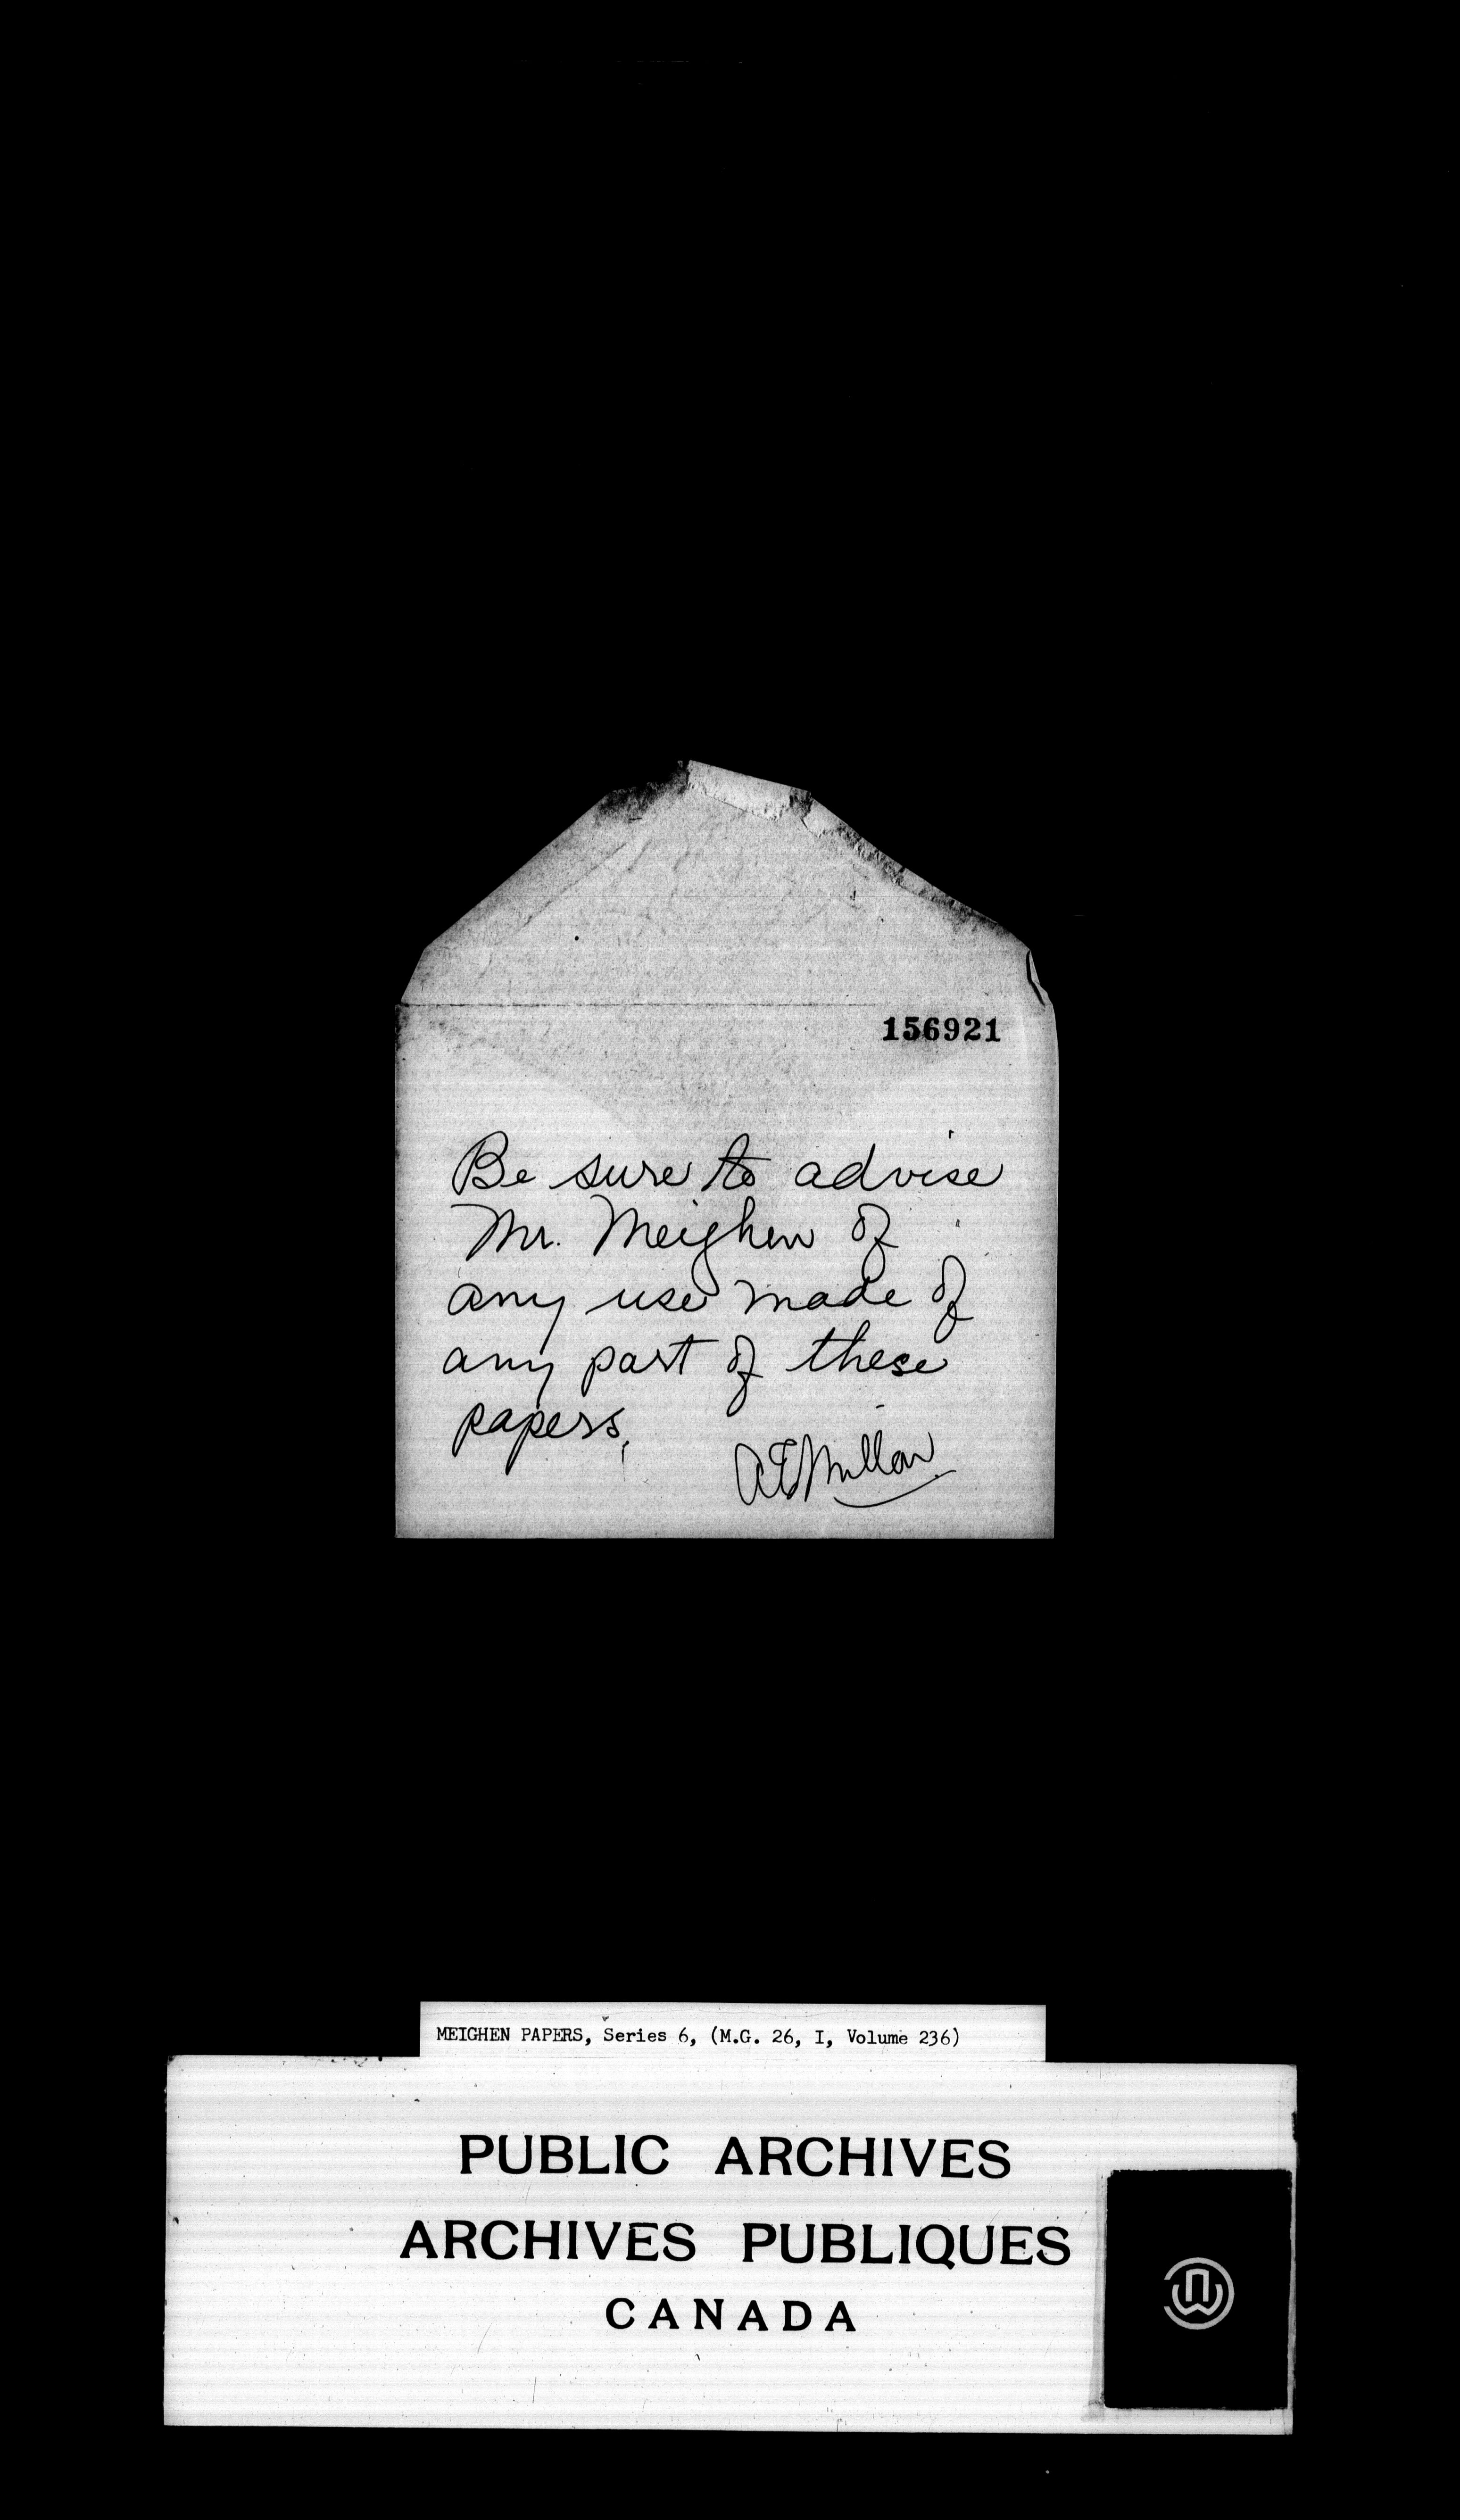 156921
Be sure to advise
Mr. Meighen of
any use made of
any part of these
papers.
MEIGHEN PAPERS, Series 6, (M.G. 26, I, Volume 236)
PUBLIC ARCHIVES
ARCHIVES PUBLIQUES
CANADA